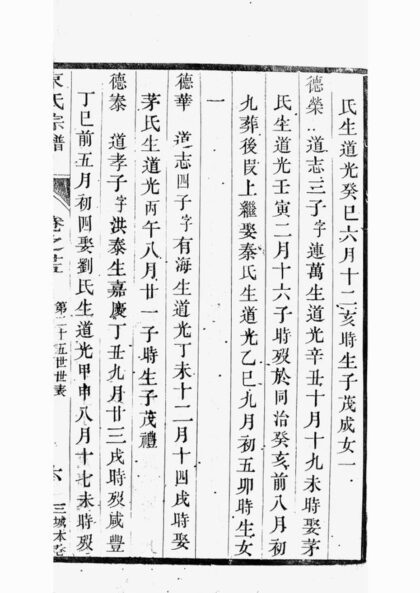 氏生道光癸巳六月十二亥時生子茂成女一
德榮道志三子字連萬生道光辛丑十月十九未時娶茅
氏生道光壬寅二月十六子時歿於同治癸亥前八月初
九葬後段上繼娶秦氏生道光乙巳九月初五卯時生女
一
德華道志四子字有海生道光丁未十二月十四戌時娶
茅氏生道光丙午八月廿一子時生子茂禮
德泰道孝子字洪泰生嘉慶丁丑九月廿三戌時歿咸豐
丁巳前五月初四娶劉氏生道光甲申八月十七未時歿
氏宗譜
卷之
第二十五世世表
六
三城本